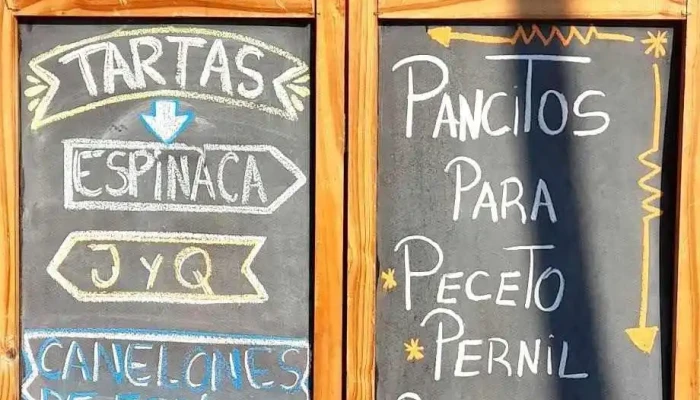 TARTAS
ESPINACA
J Y Q
CANELONES
PANCITOS
PARA
PECETO
PERNIL